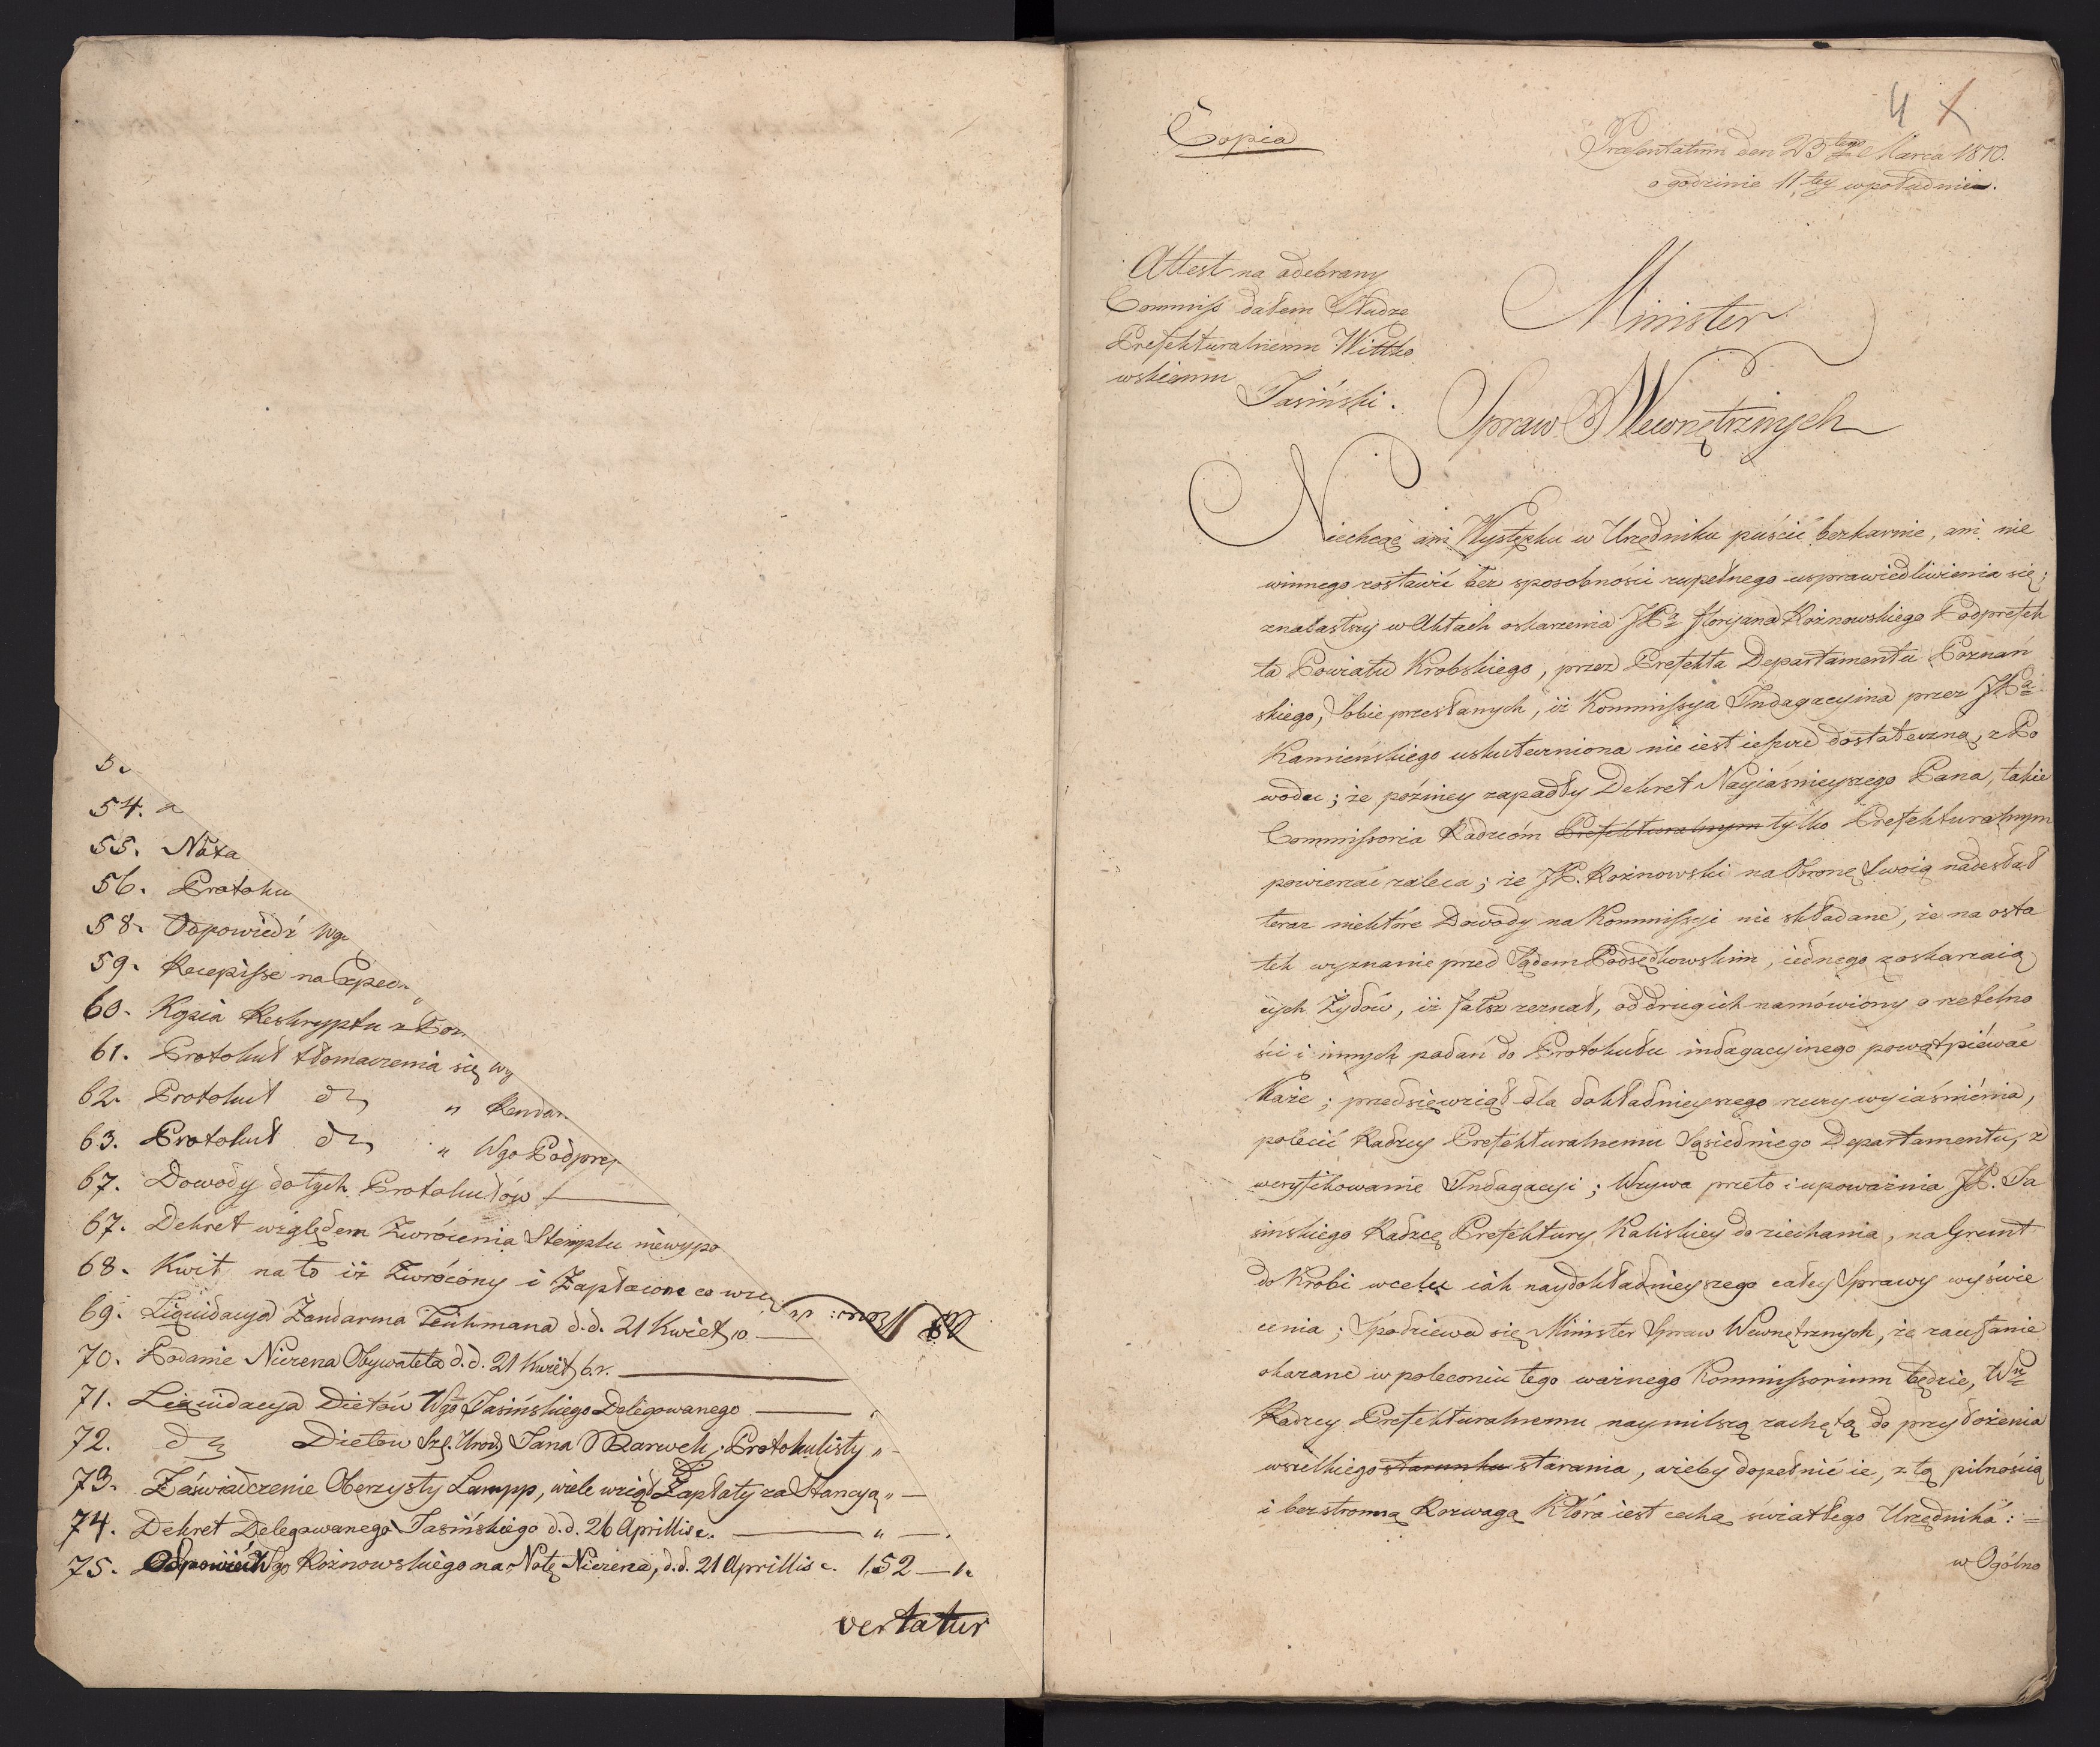 5.
54.
55. Nota
56. Protoku
58. Odpowiedź Wg
59. Recepisse na Exped
60. Kopia Reskryptu z Poz
61. Protokuł tłomaczenia się Wg
62. Protokuł d° „ Rendan
63. Protokuł d° „ Wgo Podpref
67. Dowody do tych Protokułów
67. Dekret względem Zwrócenia Stemplu niewypo
68. Kwit na to iż Zwrócony i Zapłacone co wzią
69. Liquidacya Żandarma Teichmana d.d. 21 Kwiet, 10
70. Podanie Nicrena Obywatela d.d. 21 Kwiet, b.r.
71. Liquidacya Dietów Wgo Jasińskiego Delegowanego „
72. d° Dietów Szl. Urod, Jana Barwek, Protokulisty „ —
73. Zaświadczenie Oberzysty Lampp, wiele wziął Zapłaty za Stancyą „ —
74. Dekret Delegowanego Jasińskiego d.d. 26 Aprillis c. — „ —.
75. Odpowiedź Wgo Rożnowskiego na Notę Nicrena, d.d. 21 Aprillis c. 152 — 1.
vertatur
4 1
Copia
Præsentatum den 23tego Marca 1810.
o godzinie 11tey w południe.
Attest na odebrany
Commiss dałem Słudze
Prefekturalnemu Wittko
wskiemu
Jasiński.
Minister
Spraw Wewnętrznych
Niechcąc ani Występku w Urzędniku puścić bezkarnie, ani nie
winnego zostawić bez sposobności zupełnego usprawiedliwienia się;
znalastszy w Aktach oskarzenia JPa Floryana Rożnowskiego Podprefek
ta Powiatu Krobskiego, przez Prefekta Departamentu Poznań
skiego, Sobie przesłanych, iż Kommissya Indagacyina przez JPa
Kamieńskiego uskuteczniona nie iest ieszcze dostateczną, z Po
wodu; że pózniey zapadły Dekret Nayiaśnieyszego Pana, takie
Commissoria Radzcóm Prefekturalnym tylko Prefekturalnym
powierzać zaleca; że JP. Rożnowski na Obronę Swoią nadesłał
teraz niektóre Dowody na Kommissyi nie składane, że na osta
tek wyznanie przed Sądem Podsędkowskim, iednego z oskarzaią
cych Żydów, iż fałsz zeznał, od drugich namówiony o rzetelno
ści i innych podań do Protokułu indagacyinego powątpiéwać
Każe; przedsięwziął dla dokładnieyszego rzeczy wyiaśniénia,
polecić Radzcy Prefekturalnemu Sąsiedniego Departamentu, z
weryfikowanie Indagacyi; Wzywa przeto i upoważnia JP. Ja
sińskiego Radzcę Prefektury Kaliskiey do ziechania, na Grunt
do Krobi w celu iak naydokładnieyszego całey Sprawy wyświe
cenia; Spodziewa się Minister Spraw Wewnętrznych, że zaufanie
okazane w poleceniu tego ważnego Kommissorium będzie, Wmu
Radzcy Prefekturalnemu naymilszą zachętą do przyłożenia
wszelkiego starunku starania, ażeby dopełnić ie, z tą pilnością
i bezstronną Rozwagą Która iest cechą światłego Urzędnika: =
w Ogólno